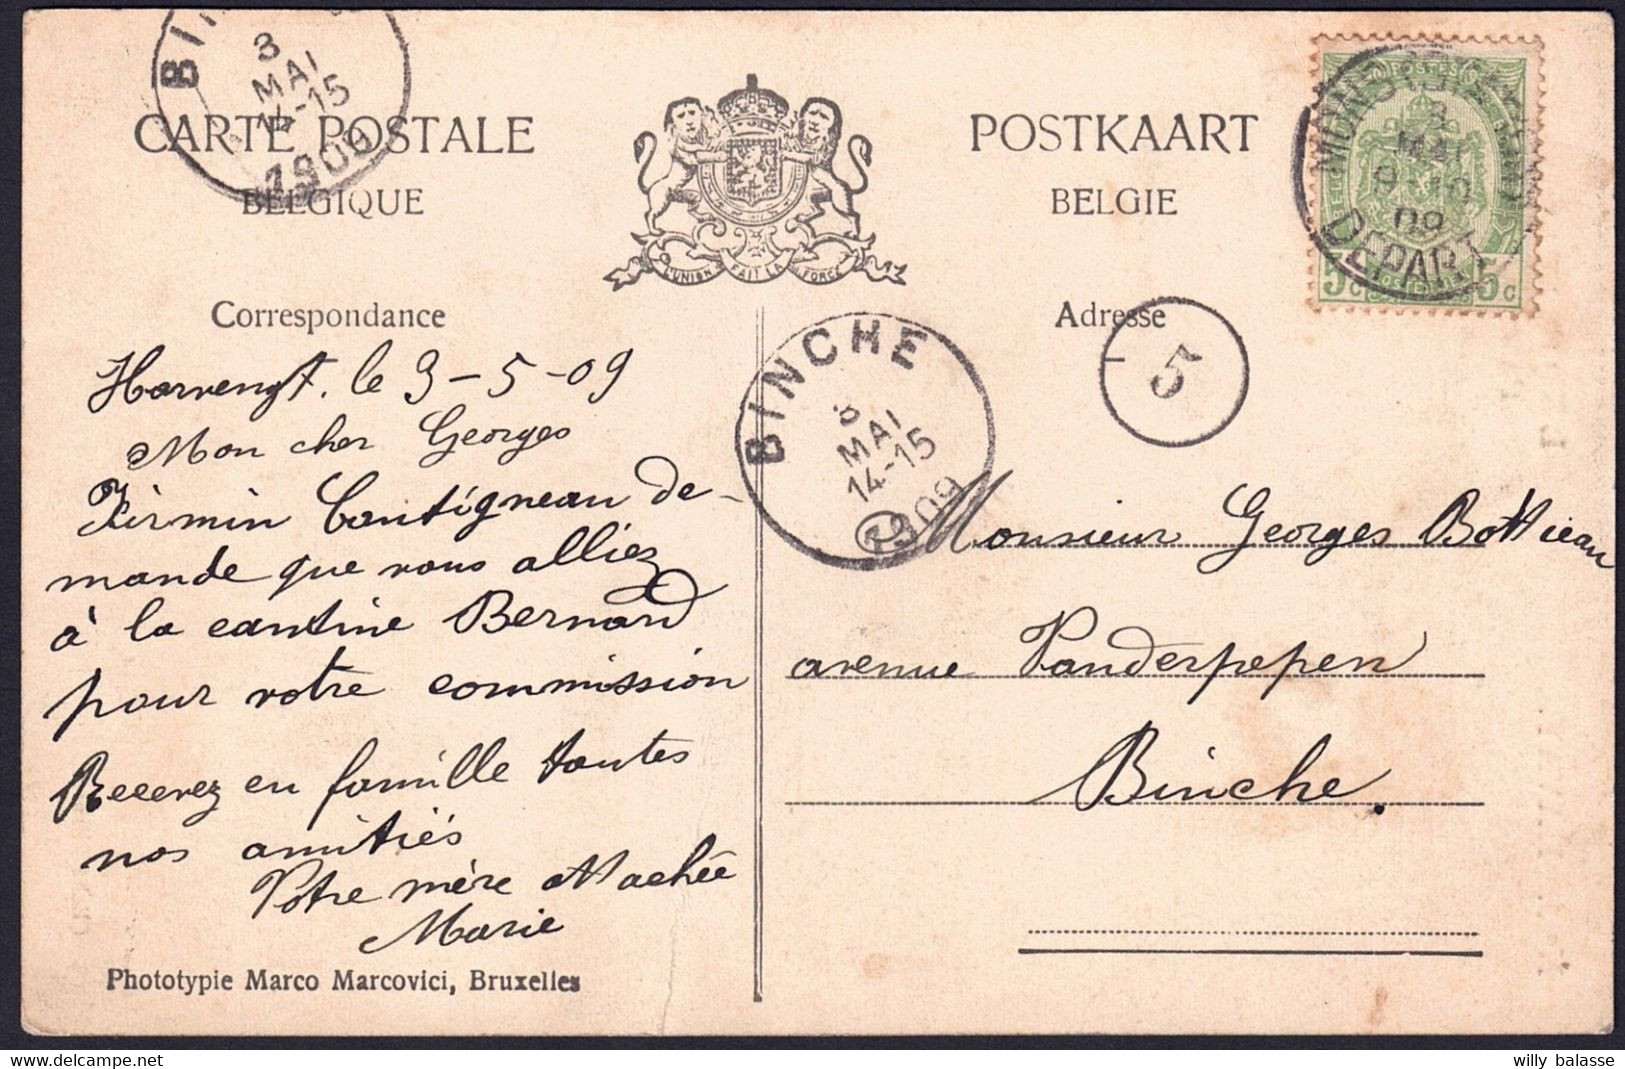 BINCHE
3
MAI
14-15
1909
CARTE POSTALE
BELGIQUE
L'UNION FAIT LA FORCE
POSTKAART
BELGIE
POSTES
3
MAI
9-10
09
DEPART
5c
5c
Correspondance
Adresse
5
BINCHE
3
MAI
14-15
1909
Harvengt. le 3-5-09
Mon cher Georges
Firmin Cantigneau de-
mande que vous alliez
à la cantine Bernard
pour votre commission
Recevez en famille toutes
nos amitiés
Votre mère attachée
Marie
Monsieur Georges Bottieau
avenue Vanderpepen
Binche.
Phototypie Marco Marcovici, Bruxelles
willy balasse